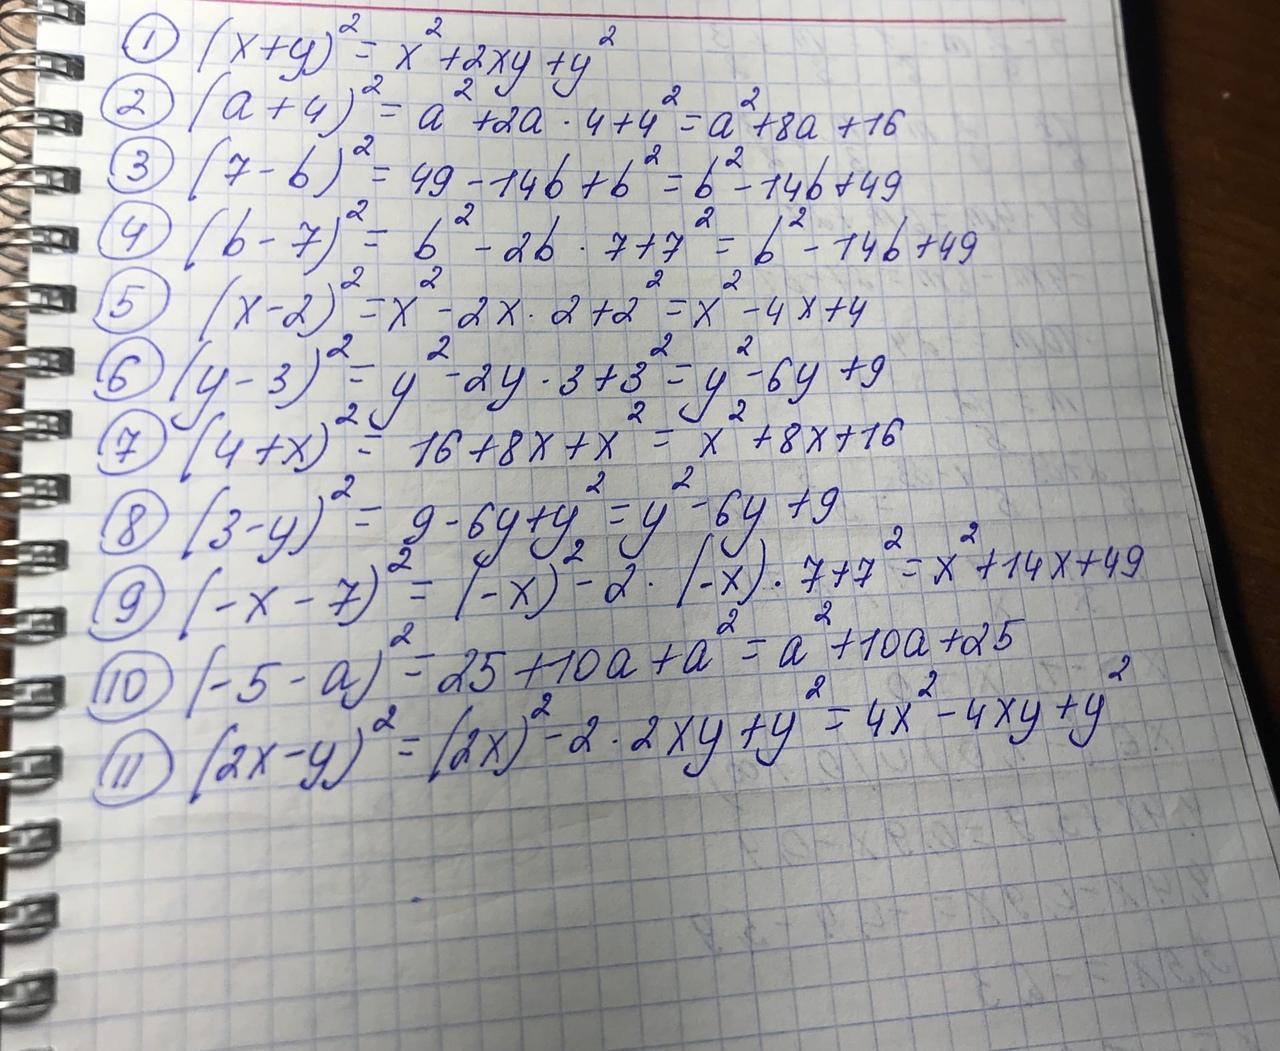 ① (x+y)² = x²+2xy+y²
② (a+4)² = a²+2a·4+4² = a²+8a+16
③ (7-b)² = 49-14b+b² = b²-14b+49
④ (b-7)² = b²-2b·7+7² = b²-14b+49
⑤ (x-2)² = x²-2x·2+2² = x²-4x+4
⑥ (y-3)² = y²-2y·3+3² = y²-6y+9
⑦ (4+x)² = 16+8x+x² = x²+8x+16
⑧ (3-y)² = 9-6y+y² = y²-6y+9
⑨ (-x-7)² = (-x)²-2·(-x)·7+7² = x²+14x+49
⑩ (-5-a)² = 25+10a+a² = a²+10a+25
⑪ (2x-y)² = (2x)²-2·2xy+y² = 4x²-4xy+y²